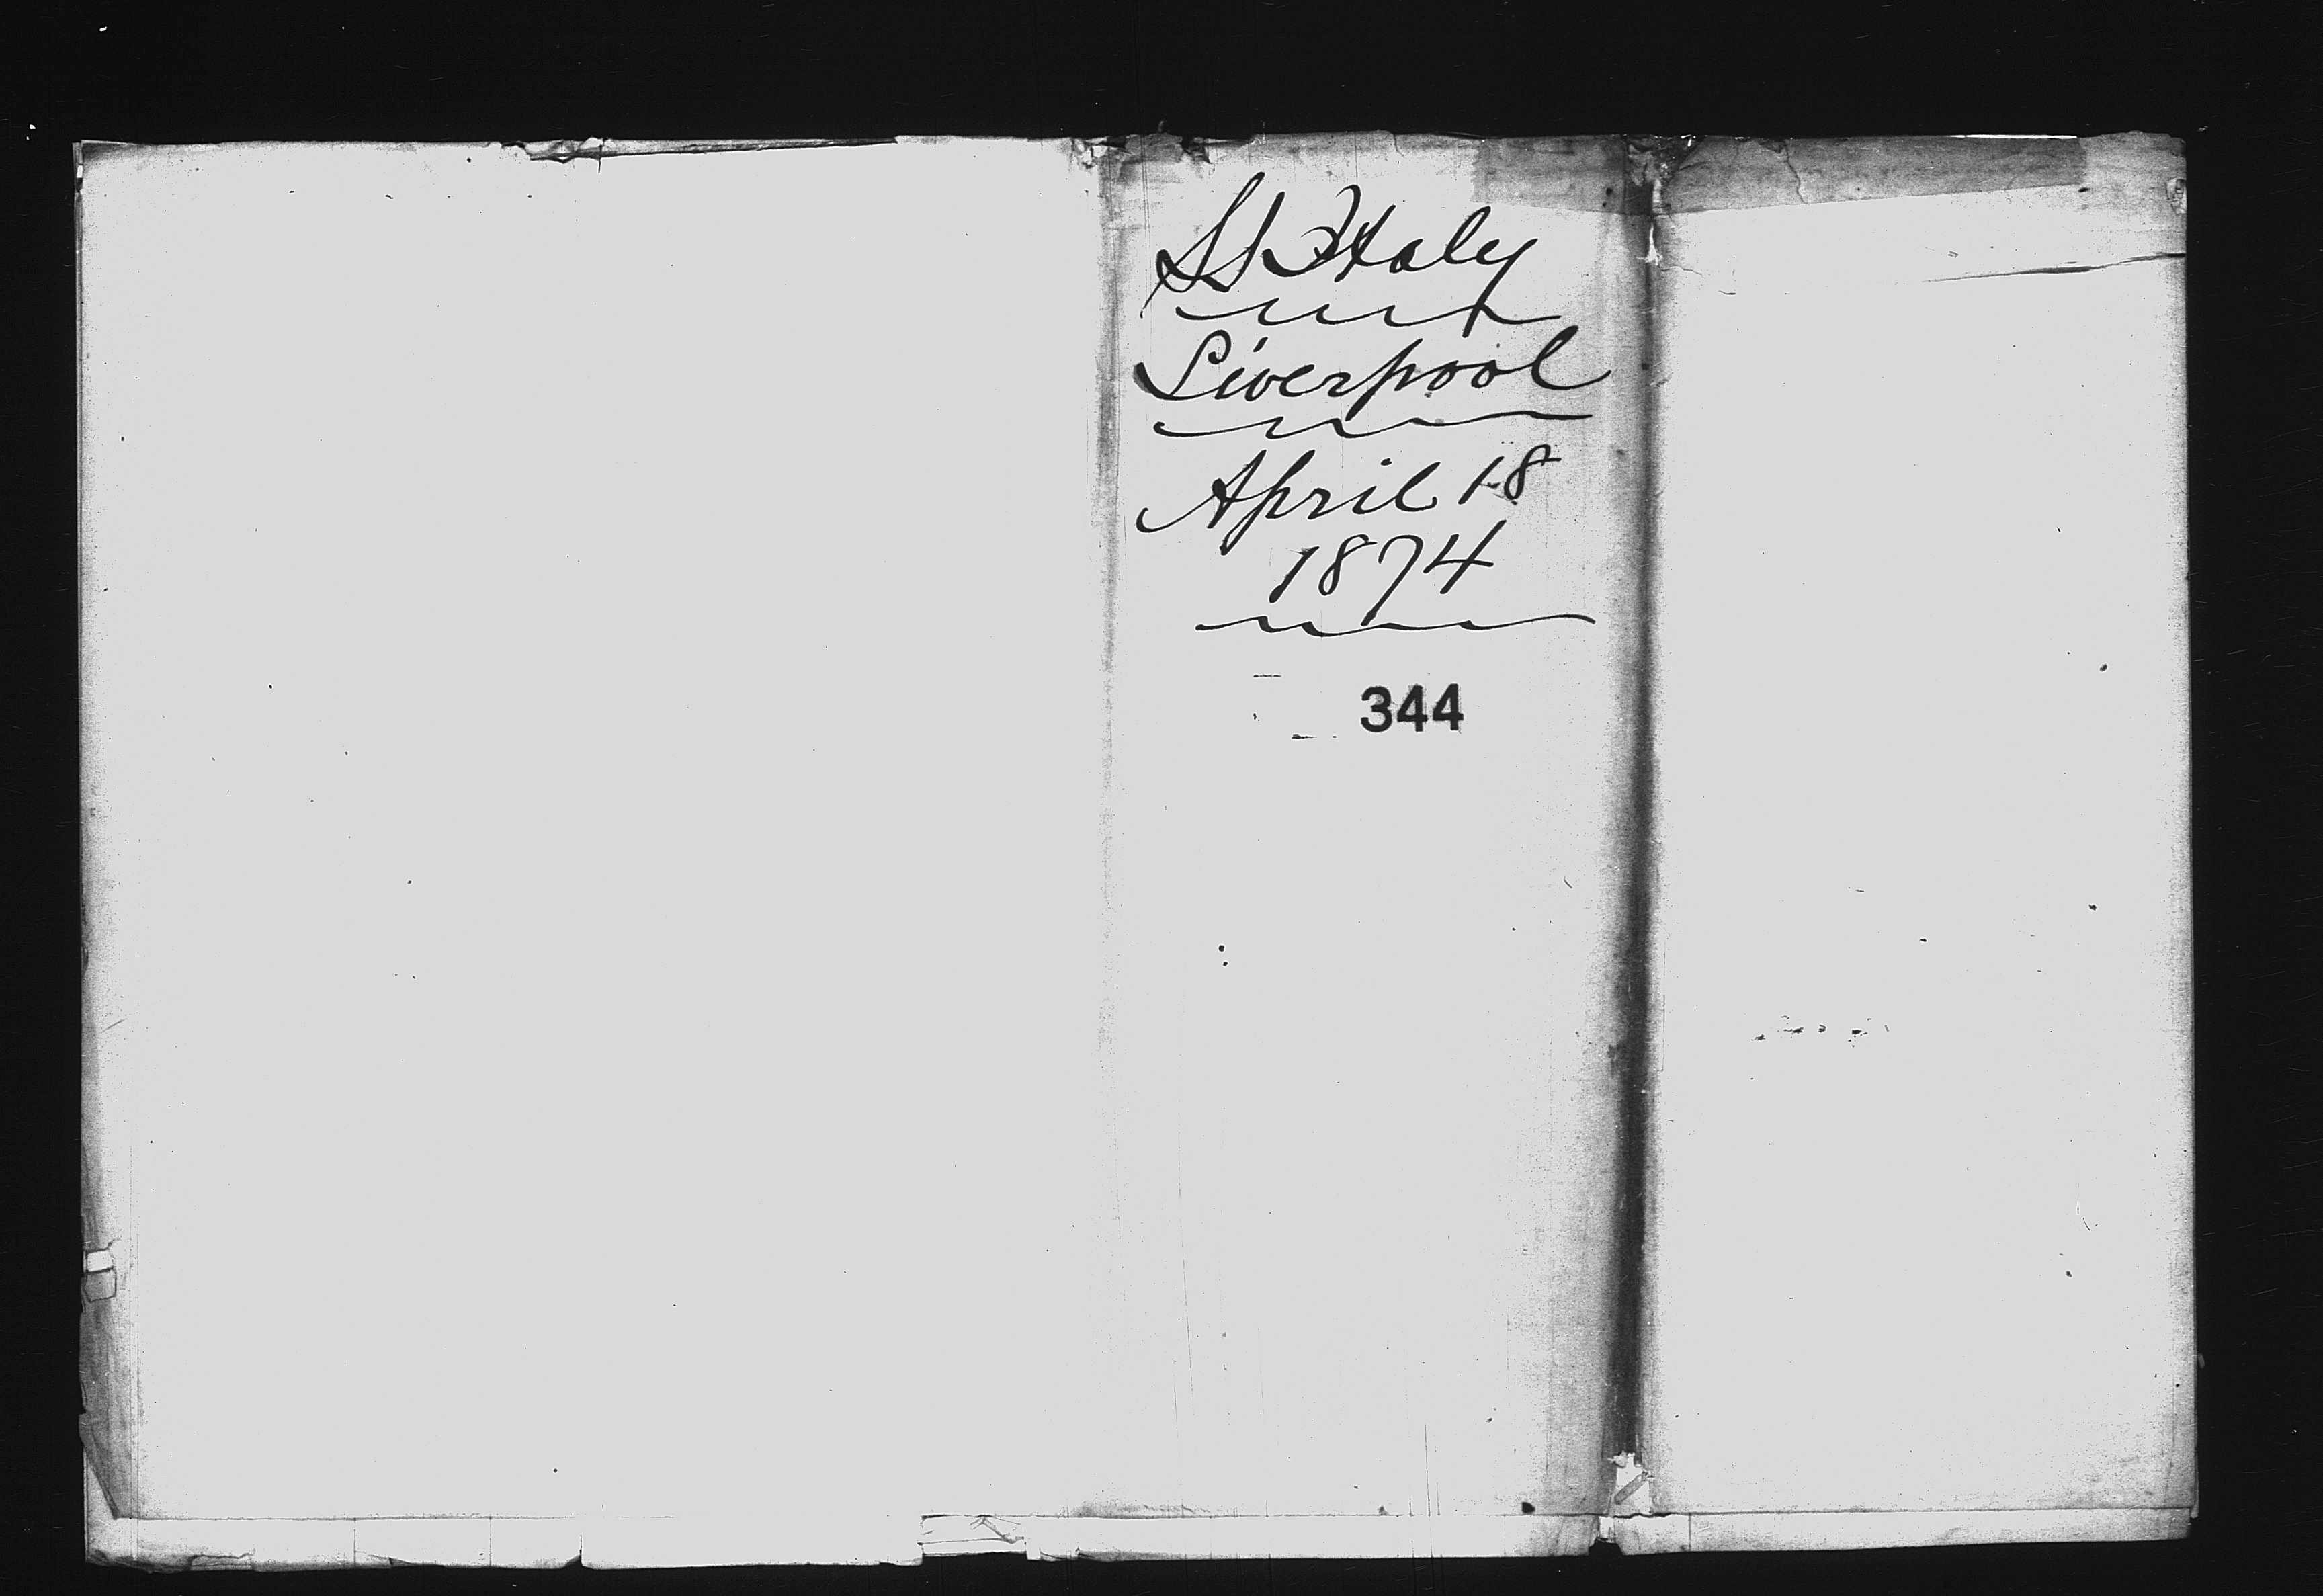 SS Italy
Liverpool
April 18
1874
344